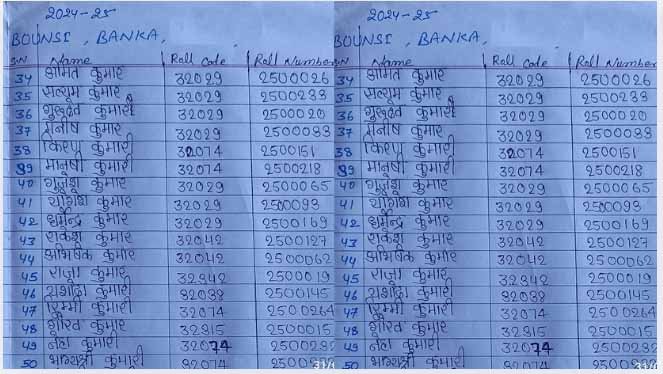 2024-25
BOUNSI, BANKA,
SN Name Roll Code Roll Number
34 अमित कुमार 32029 2500026
35 कुमार 32029 2500233
36 कुमारी 32029 2500020
37 मनीष कुमार 32029 2500033
38 किरण कुमारी 32074 2500151
39 मानुषी कुमारी 32074 2500218
40 कुमार 32029 2500065
41 कुमार 32029 2500093
42 धर्मेन्द्र कुमार 32029 2500169
43 राकेश कुमार 32042 2500127
44 अभिषेक कुमार 32042 2500062
45 राजा कुमार 32342 2500019
46 कुमारी 32038 2500145
47 कुमारी 32074 2500264
48 कुमार 32315 2500015
49 नेहा कुमारी 32074
50 कुमारी 32074
2024-25
BOUNSI, BANKA,
SN Name Roll Code Roll Number
34 अमित कुमार 32029 2500026
35 कुमार 32029 2500233
36 कुमारी 32029 2500020
37 मनीष कुमार 32029 2500033
38 किरण कुमारी 32074 2500151
39 मानुषी कुमारी 32074 2500218
40 कुमार 32029 2500065
41 कुमार 32029 2500093
42 धर्मेन्द्र कुमार 32029 2500169
43 राकेश कुमार 32042 2500127
44 अभिषेक कुमार 32042 2500062
45 राजा कुमार 32342 2500019
46 कुमारी 32038 2500145
47 कुमारी 32074 2500264
48 कुमार 32315 2500015
49 नेहा कुमारी 32074
50 कुमारी 32074